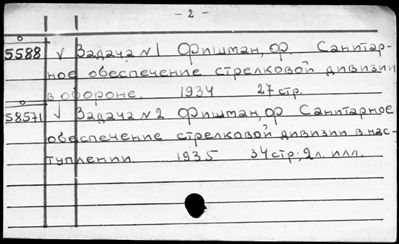 - 2 -
5588 √ Задача №1 Фришман, ф. Санитар-
ное обеспечение стрелковой дивизии
в обороне. 1934 27 стр.
58571 √ Задача №2 Фришман, ф Санитарное
обеспечение стрелковой дивизии в нас-
туплении. 1935 34 стр; 2 л. илл.